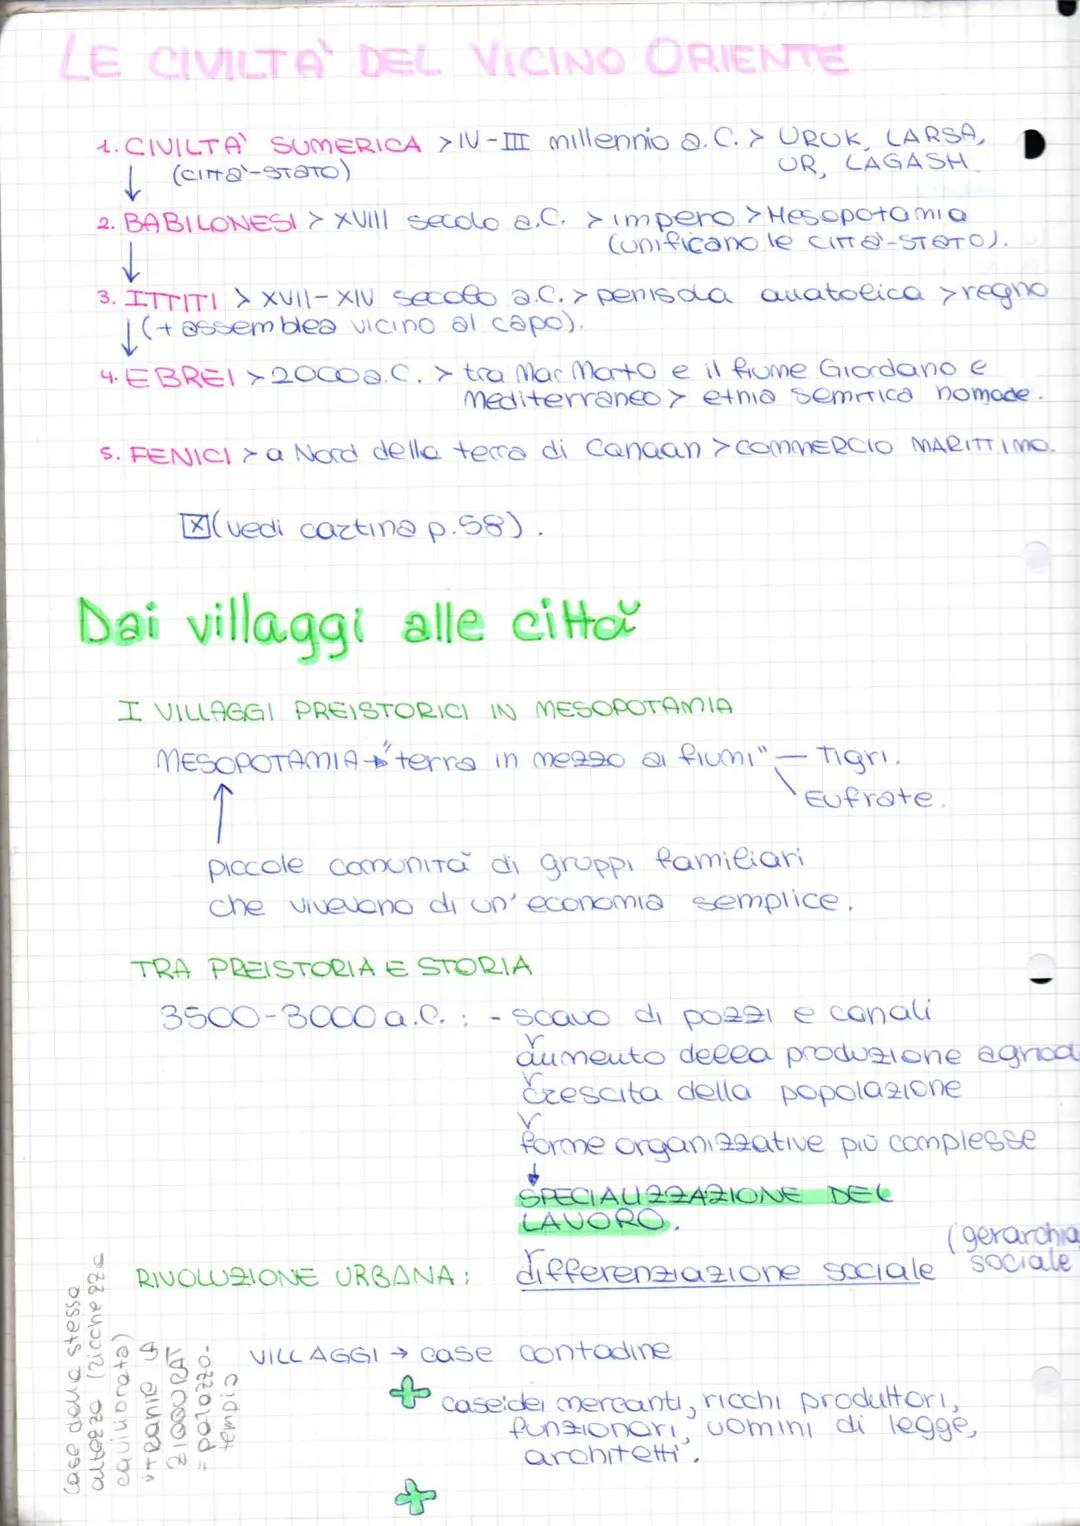 LE CIVILTA' DEL VICINO ORIENTE
1. CIVILTA' SUMERICA > IV-III millennio a.C. > URUK, LARSA,
(CITTA'-STATO) UR, LAGASH
2. BABILONESI > XVIII secolo a.C. > impero > Mesopotamia
(unificano le CITTA'-STATO).
3. ITTITI > XVII-XIV secolo a.C. > penisola anatolica > regno
(+ assemblea vicino al capo).
4. EBREI > 2000 a.C. > tra Mar Morto e il fiume Giordano e
Mediterraneo > etnia semitica nomade.
5. FENICI > a Nord della terra di Canaan > COMMERCIO MARITTIMO.
(vedi cartina p.58).
Dai villaggi alle città
I VILLAGGI PREISTORICI IN MESOPOTAMIA
MESOPOTAMIA → "terra in mezzo ai fiumi" — Tigri.
Eufrate.
piccole comunità di gruppi familiari
che vivevano di un'economia semplice.
TRA PREISTORIA E STORIA
3500-3000 a.C.: - scavo di pozzi e canali
aumento della produzione agricola
crescita della popolazione
forme organizzative più complesse
SPECIALIZZAZIONE DEL
LAVORO.
(gerarchia
RIVOLUZIONE URBANA: differenziazione sociale sociale
VILLAGGI → case contadine
+ case dei mercanti, ricchi produttori,
funzionari, uomini di legge,
architetti.
+
case della stessa
altezza (ricchezza
equilibrata)
ZIGGURAT
= palazzo-
tempio